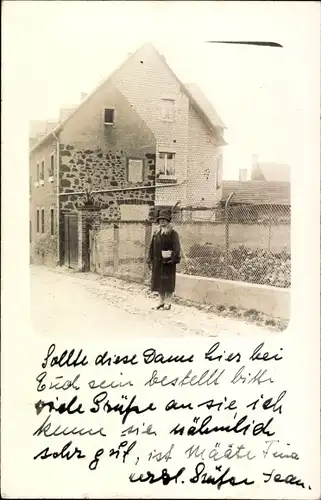 Sollte diese Dame hier bei
Euch sein bestellt bitte
viele Grüße an sie, ich
kenne sie nähmlich
sehr gut, ist Määte Tina
Grüße Jean.